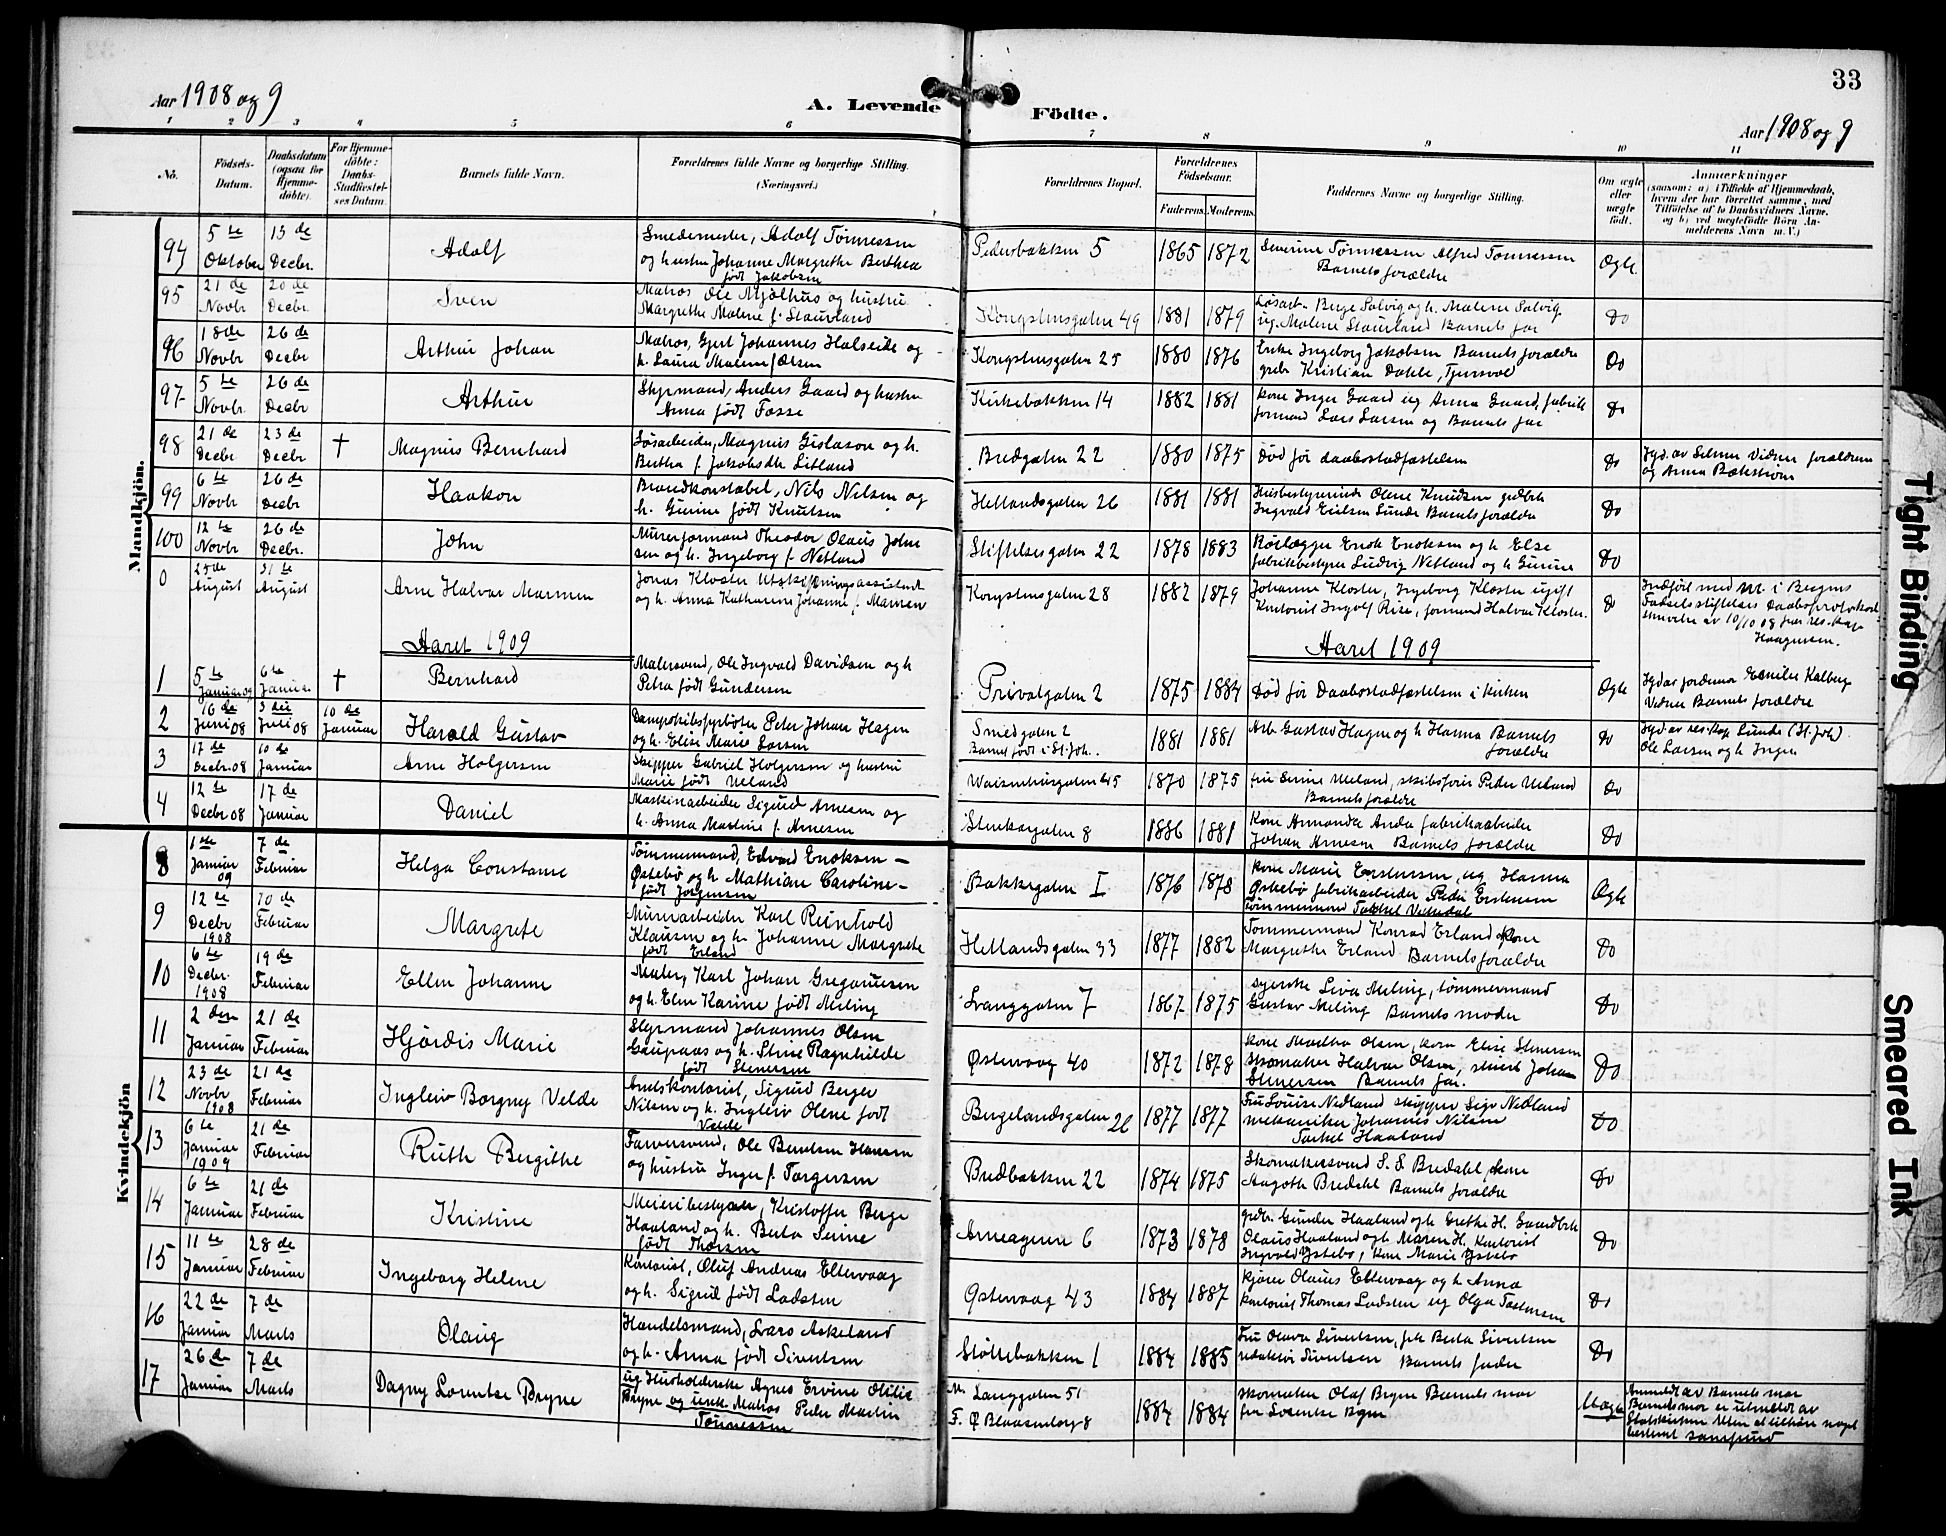 33
Aar 1908 og 9
A. Levende Födte.
Aar 1908 og 9
1 2 3 4 5 6 7 8 9 10 11
No.
Födsels-Datum.
Daabsdatum (ogsaa for Hjemme-döbte).
For Hjemme-döbte: Daabs-Stadfæstel-ses Datum.
Barnets fulde Navn.
Forældrenes fulde Navne og borgerlige Stilling. (Næringsvei.)
Forældrenes Bopæl.
Forældrenes Födselsaar.
Faderens. Moderens.
Faddernes Navne og borgerlige Stilling.
Om ægte eller uægte födt.
Anmærkninger
(saasom: a) i Tilfælde af Hjemmedaab, hvem der har forrettet samme, med Tilföielse af to Daabsvidners Navne, og b) ved uægtefödte Börn Anmelderens Navn m. V.)
Mandkjön.
94 5te Oktober 13de Decbr. Adolf
Smedemester, Adolf Tønnessen
og hustru Johanne Margrethe Berthea
født Jakobsen
Pedersbakken 5 1865 1872
Severine Tønnessen Alfred Tønnessen
Barnets forældre
Ægte
95 21de Novbr 20de Decbr. Sven
Matros Ole Mjølhus og hustru
Margrethe Malene f. Staurland
Kongshusgaten 49 1881 1879
Løsarb. Berge Salvig og h. Malene Salvig
ug. Malene Staurland Barnets far
Do
96 18de Novbr 26de Decbr Arthur Johan
Matros, Gjert Johannes Halseide og
h. Laura Malene f. Olsen
Kongshusgaten 25 1880 1876
Enke Ingeborg Jakobsen Barnets forældre
Kristian Dahle, Tjersvol
Do
97 5te Novbr 26de Decbr Arthur
Styrmand, Anders Gaard og hustru
Anna født Fosse
Kirkebakken 14 1882 1881
kone Inger Gaard ug Anna Gaard, fabrik
formand Lars Larsen og Barnets far
Do
98 21de Decbr 23de Decbr † Magnus Bernhard
Løsarbeider, Magnus Gislason og h.
Bertha f. Jakobsdtr Litland
Bredgaten 22 1880 1875
Død før daabsstadfæstelsen
Do
Hjd. av Selmer Vidnen forældrene
og Anna Bækstrøm
99 6te Novbr 26de Decbr Haakon
Brandkonstabel, Nils Nilsen og
h. Gurine født Knutsen
Hetlandsgaten 26 1881 1881
Husbestyrerinde Olene Knudsen
Ingvald Eielsen Sunde Barnets forældre
Do
100 12te Novbr 26de Decbr. John
Murerformand Theodor Olaus John
sen og h. Ingeborg f. Netland
Stiftelsesgaten 22 1878 1883
Rørlægger Enok Enoksen og h Else
fabrikbestyrer Ludvig Netland og h Gurine
Do
0 25de August 31te August Arne Halvar Marmen
Jonas Kloster Utskiftningsassistent
og h. Anna Katharina Johanne f. Mamen
Kongshusgaten 28 1882 1879
Johanne Kloster, Ingeborg Kloster ugift
Kontorist Ingolf Riise, formand Halvar Kloster.
Do
Indført med nr. i Bergens
Fødselsstiftelses Daabsprotokol
skrivelse av 10/10 08 fra res. kap
Haagensen.
Aaret 1909 Aaret 1909
1 5te Januar 09 6te Januar † Bernhard
Malersvend, Ole Ingvald Davidsen og h
Petra født Gundersen
Privatgaten 2 1875 1884
Død før Daabsstadfæstelsen i kirken
Ægte
Hjd av jordemor Emilie Kalberg
Vidner Barnets forældre
2 16de Juni 08 3die Juli 08 10de Januar Harald Gustav
Dampskibsfyrbøter Peter Johan Hagen
og h. Elise Marie Larsen
Smedgaten 2
Barnet født i St. Joh.
1881 1881
Arb. Gustav Hagen og h Hanna Barnets
forældre
Do
Hjd. av res. kap Lunde (St. Joh)
Ole Larsen og h Inger
3 17de Decbr. 08 10de Januar Arne Holgersen
Skipper Gabriel Holgersen og hustru
Marie født Ueland
Waisenhusgaten 45 1870 1875
fru Serine Ueland, skibsfører Peder Ueland
Barnets forældre
Do
4 12te Decbr 08 17de Januar Daniel
Maskinarbeider Sigurd Arnesen og
h. Anna Martine f. Arnesen
Stenkargaten 8 1886 1881
Kone Amanda Anda fabrikarbeider
Johan Arnesen Barnets forældre
Do
Kvindekjön
8 1ste Januar 09 7de Februar Helga Constanse
Tømmermand, Edvard Enoksen -
Østebø og h Mathilde Caroline -
født Jørgensen
Bakkegaten I 1876 1878
kone Marie Erstensen, ug Hanna
Østebø fabrikarbeider Peder Erstensen
tømmermand Torkel Vetledal
Ægte
9 12te Decbr 1908 10de Februar Margrete
Murerarbeider Karl Reinhold
Klausen og h. Johanne Margrete
født Erland
Hetlandsgaten 33 1877 1882
Tømmermand Konrad Erland kone
Margrethe Erland Barnets forældre
Do
10 6te Decbr. 1908 19de Februar Ellen Johanne
Maler, Karl Johan Gregoriussen
og h. Elen Karine født Meling
Langgaten 7 1867 1875
syerske Liva Meling, tømmermand
Gustav Meling Barnets moder
Do
11 2den Januar 21de Februar Hjørdis Marie
Styrmand Johannes Olsen
Gaupaas og h. Stine Ragnhilde
født Stenersen
Østervaag 40 1872 1878
kone Martha Olsen, kone Elise Stenersen
skomaker Halvar Olsen, Johan
Stenersen Barnets far.
Do
12 23de Novbr 1908 21de Februar Ingleiv Borgny Velde
Amtskontorist, Sigurd Berger
Nilsen og h. Ingleiv Olene født
Velde
Bergelandsgaten 26 1877 1877
Fru Louise Nedland skipper Sigv Nedland
mekaniker Johannes Nilsen
Torkel Haaland
Do
13 6te Januar 1909 21de Februar Ruth Bergithe
Farversvend, Ole Berntsen Hansen
og hustru Inger f. Torgersen
Bredbakken 22 1874 1875
Skomakersvend S. S. Bredahl, kone
Aagoth Bredahl Barnets forældre
Do
14 6te Januar 21de Februar Kristine
Meieribestyrer, Kristoffer Berge
Haaland og h. Berta Serine
født Thorsen
Arneageren 6 1873 1878
grdbr. Gunder Haaland og h Grethe H. Gaardbrk
Olaus Haaland og h Maren H. Kontorist
Ingvald Ystebø, Kone Marie Ystebø
Do
15 11te Januar 28de Februar Ingeborg Helene
Kontorist, Oluf Andreas Eltervaag
og h. Sigrid født Lodsten
Østervaag 43 1884 1887
kjører Olaus Eltervaag og h Anna
kontorist Thomas Lodsten ug Olga Tostensen
Do
16 22de Januar 7de Marts Olaug
Handelsmand, Lars Askeland
og h. Anna født Sivertsen
Støttebakken 1 1884 1885
Fru Olava Sivertsen, frk Berta Sivertsen
redaktør Sivertsen Barnets fader
Do
17 26de Januar 7de Marts Dagny Lorentse Bryne
ug Husholderske Agnes Ervine Otilie
Bryne og unk Matros Peder Martin
Tønnessen
M. Langgaten 51
F. Ø Blaasenborg 8
1884 1884
skomaker Olaf Bryne Barnets mor
fru Lorentse Bryne
Uægte
Anmeldt av Barnets mor
Barnets mor er utmeldt av
Statskirken uten at tilhøre noget
bestemt samfund
Tight Binding
Smeared Ink